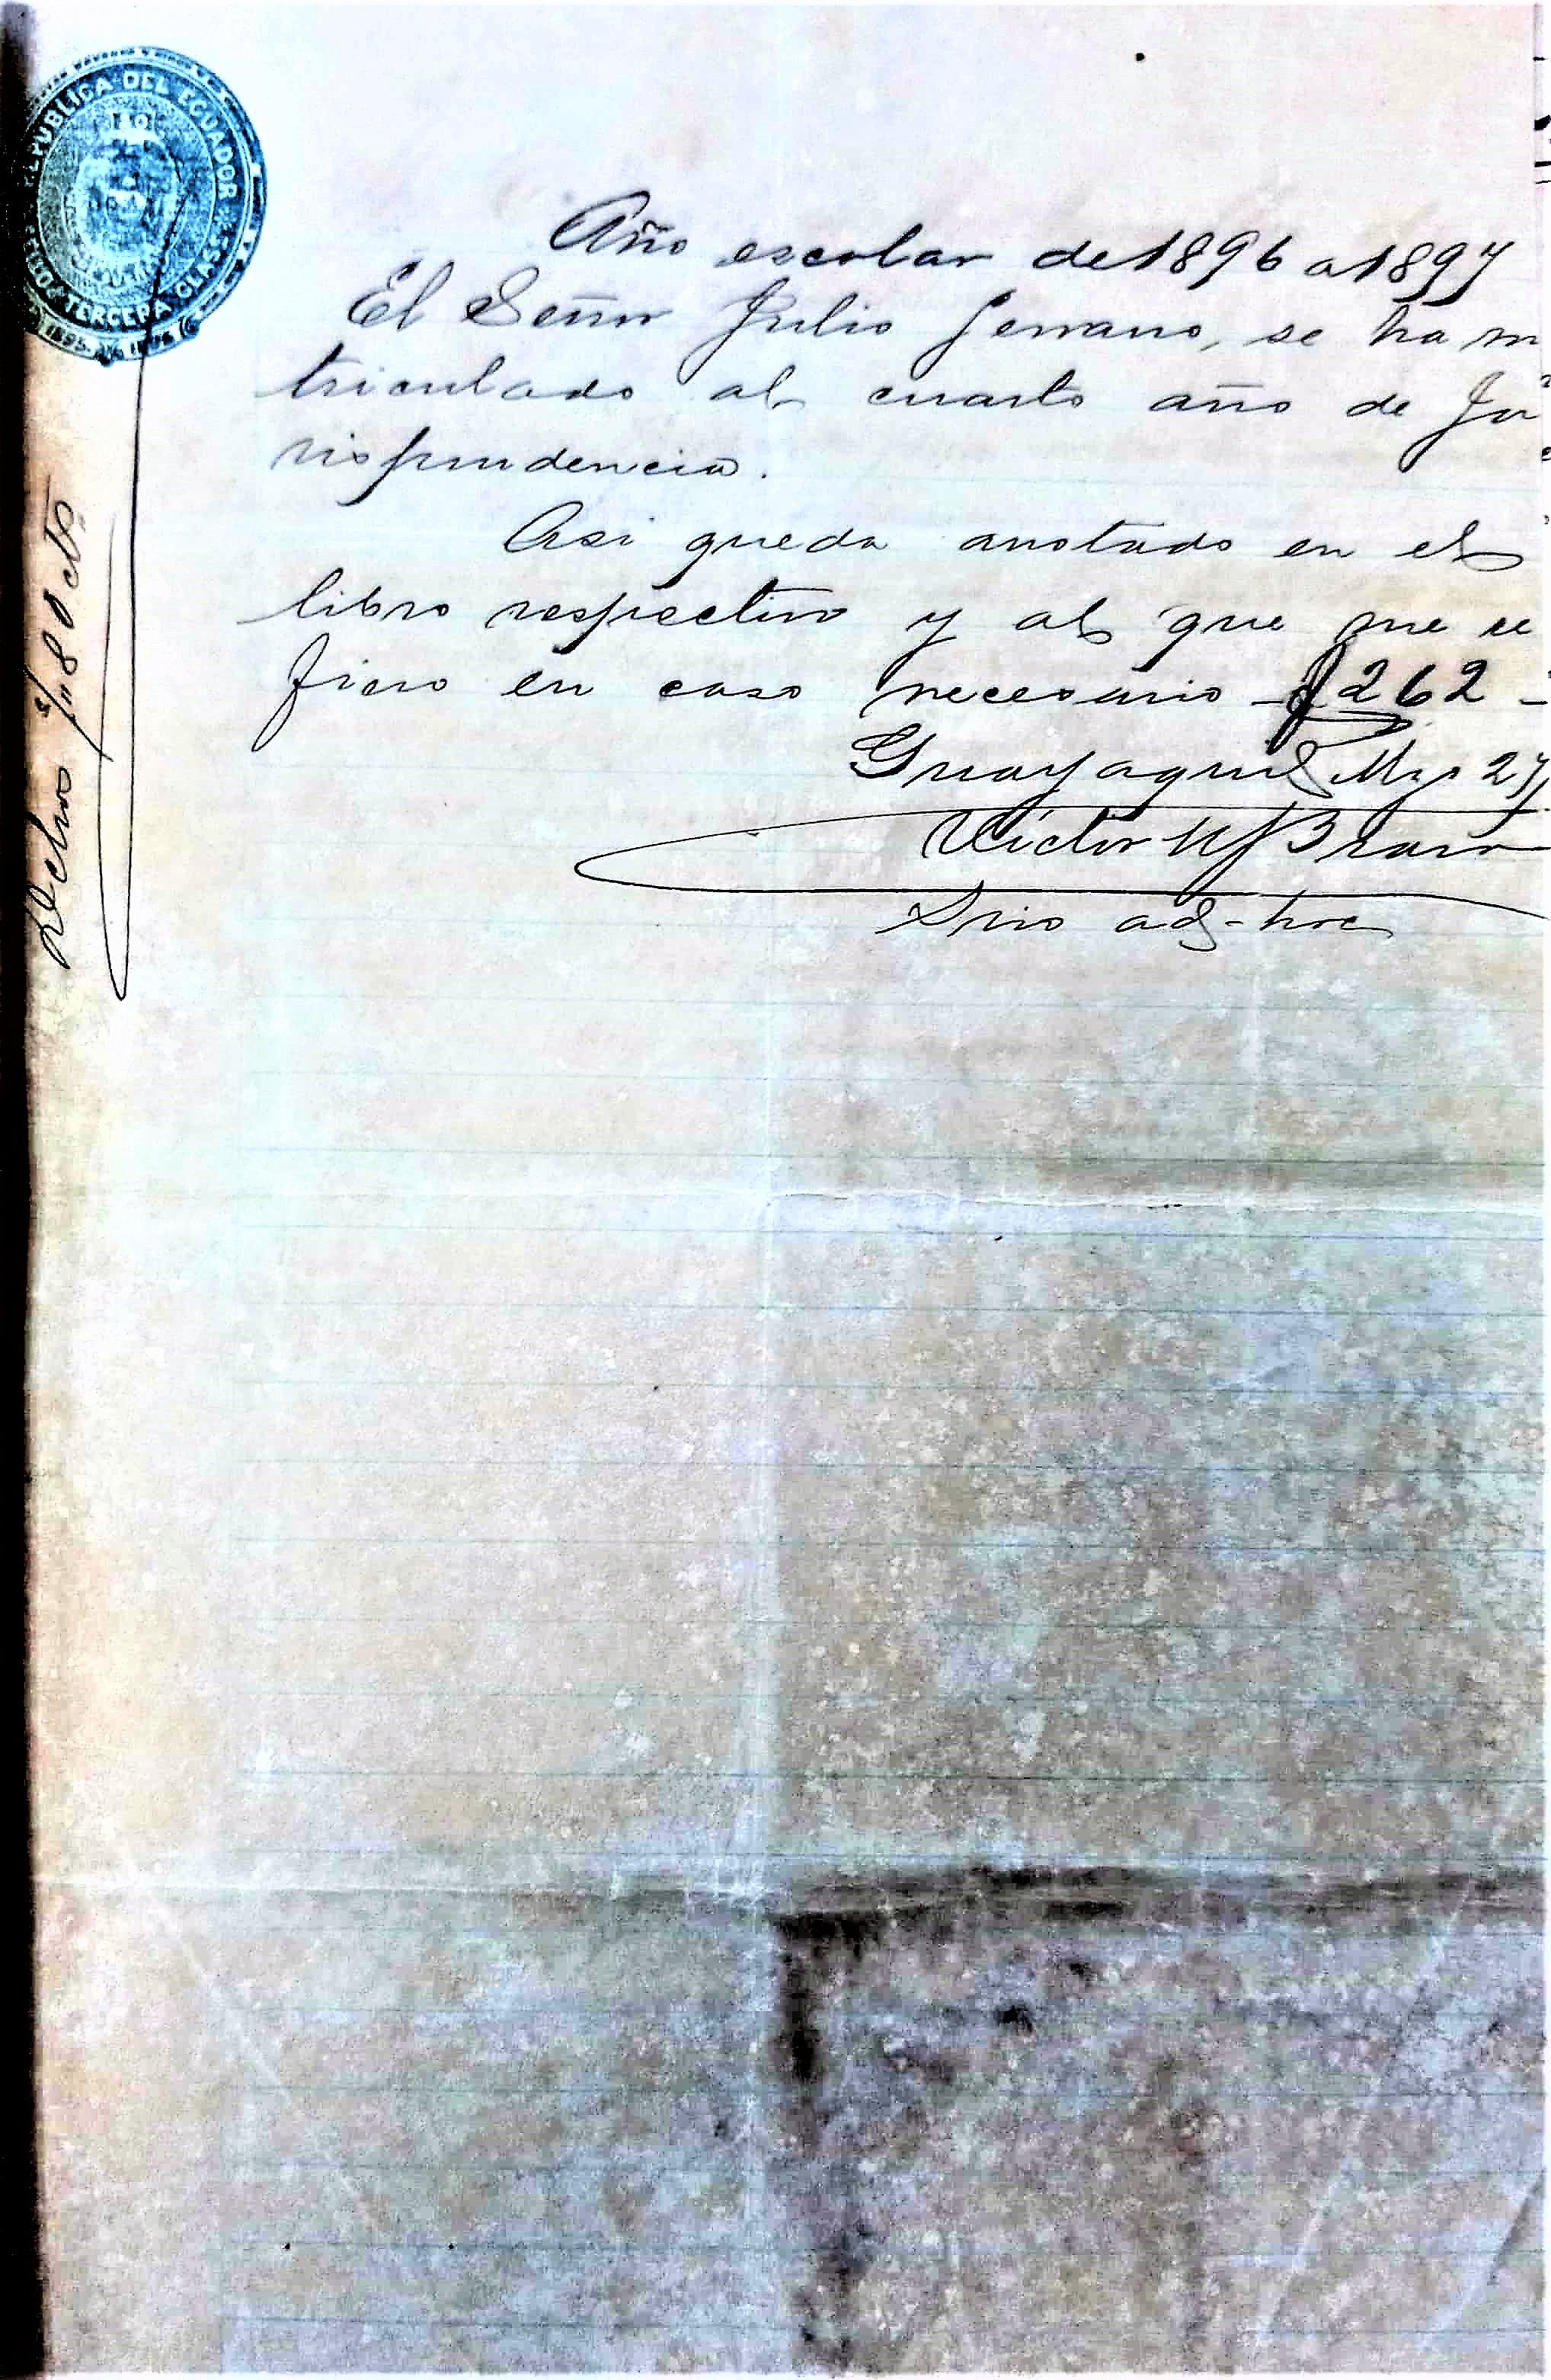 REPUBLICA DEL ECUADOR
TERCERA CLASE
1895
Año escolar de 1896 a 1897
El Señor Julio Serrano, se ha m
triculado al cuarto año de Ju
risprudencia.
Asi queda anotado en el
libro respectivo y al que me re
fiero en caso necesario - f 262 -
Guayaquil Mzo 27
Víctor M Bravo
Srio ad-hoc
Dchos s/ 80 cts